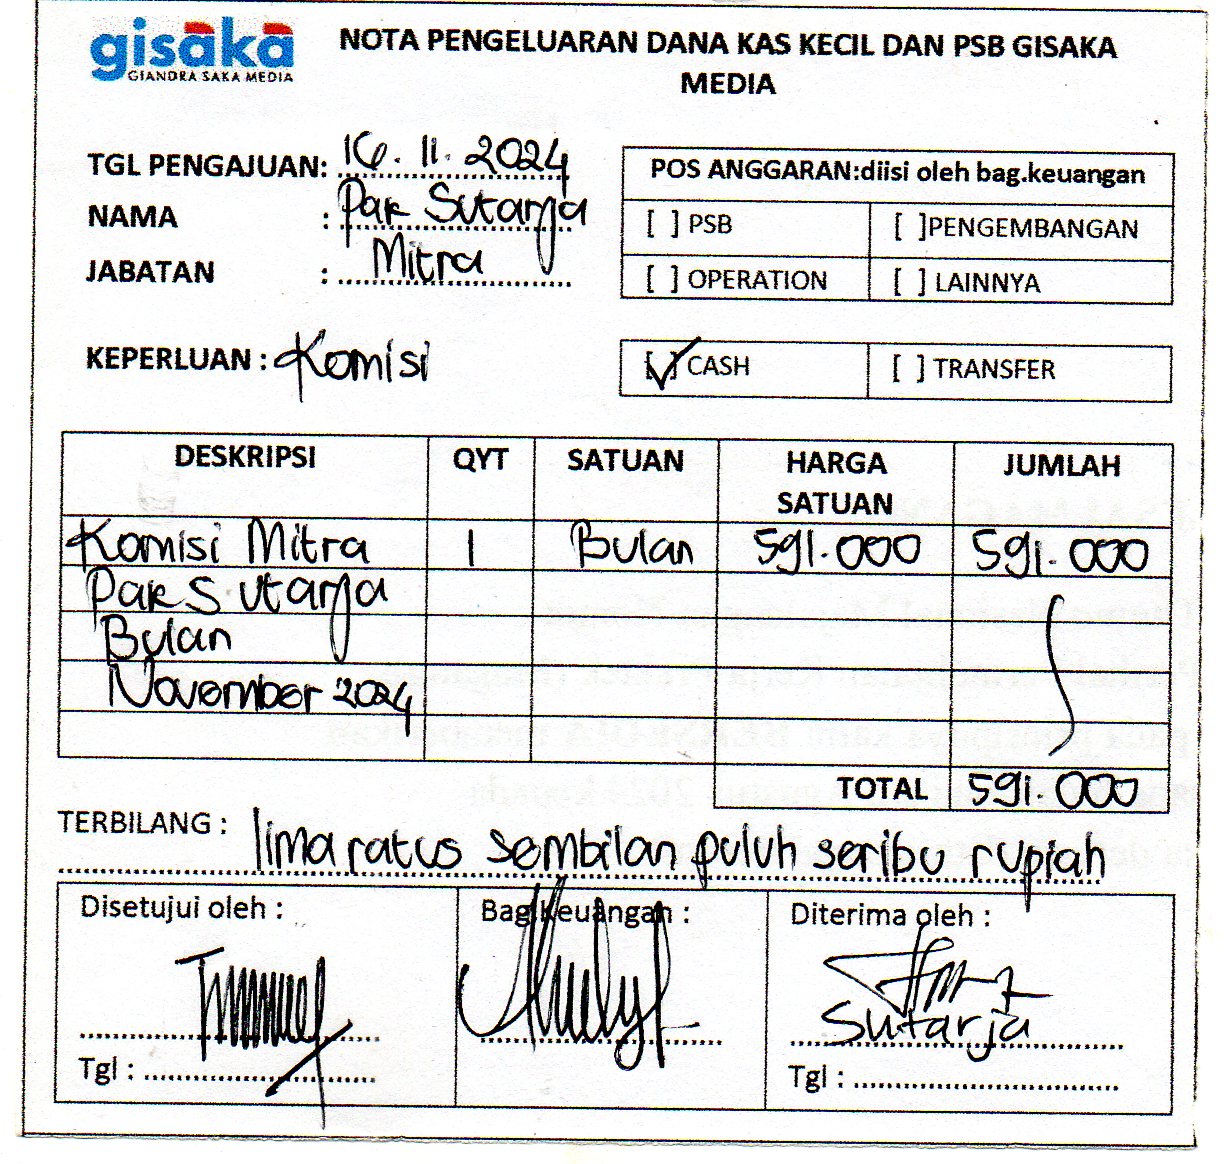 gisaka
GIANDRA SAKA MEDIA
NOTA PENGELUARAN DANA KAS KECIL DAN PSB GISAKA
MEDIA
TGL PENGAJUAN: 16.11.2024
NAMA : Pak Sutarja
JABATAN : Mitra
POS ANGGARAN:diisi oleh bag.keuangan
[ ] PSB [ ]PENGEMBANGAN
[ ] OPERATION [ ] LAINNYA
KEPERLUAN : Komisi
[✓] CASH [ ] TRANSFER
DESKRIPSI QYT SATUAN HARGA SATUAN JUMLAH
Komisi Mitra 1 Bulan 591.000 591.000
Pak Sutarja
Bulan
November 2024
TOTAL 591.000
TERBILANG : lima ratus sembilan puluh seribu rupiah
Disetujui oleh : Bag.Keuangan : Diterima oleh :
Sutarja
Tgl : Tgl :